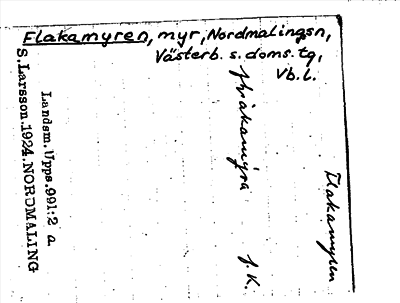 Elakamyren, myr, Nordmalingsn,
Västerb. s. doms. tg,
Vb. l.
Elakamyren
J. K.
Landsm. Upps. 991:2 a.
S. Larsson. 1924. NORDMALING